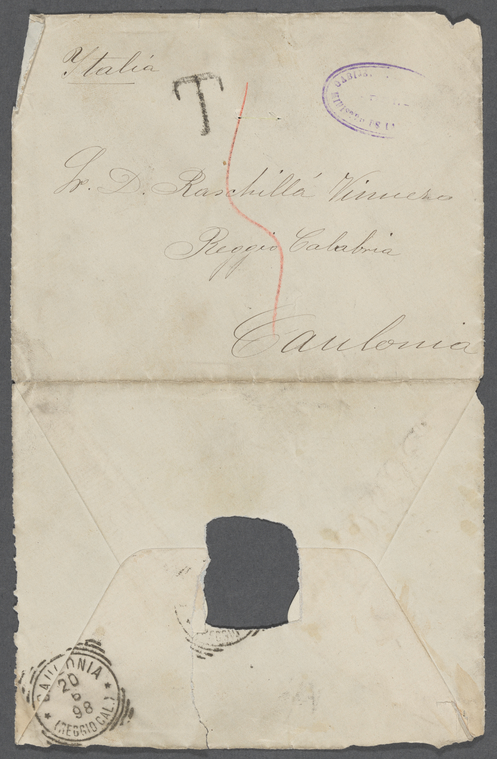 Italiá
T
Sr. D. Raschillá
Reggio Calabria
Caulonia
CAULONIA
20
6
98
(REGGIO CAL.)